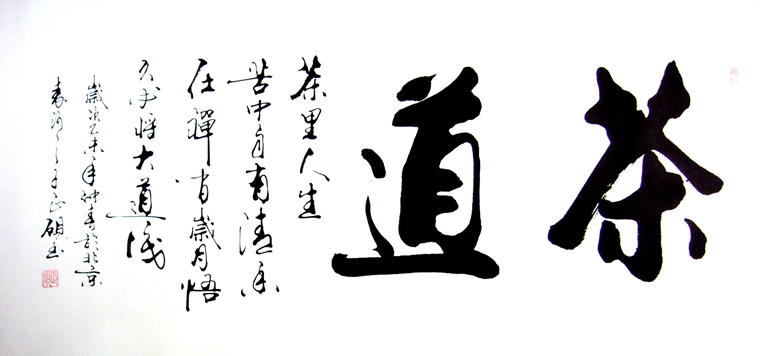 茶道
茶里人生
苦中自有清香
在禪歲月悟
久必將大道成
歲次乙未年仲春於北京